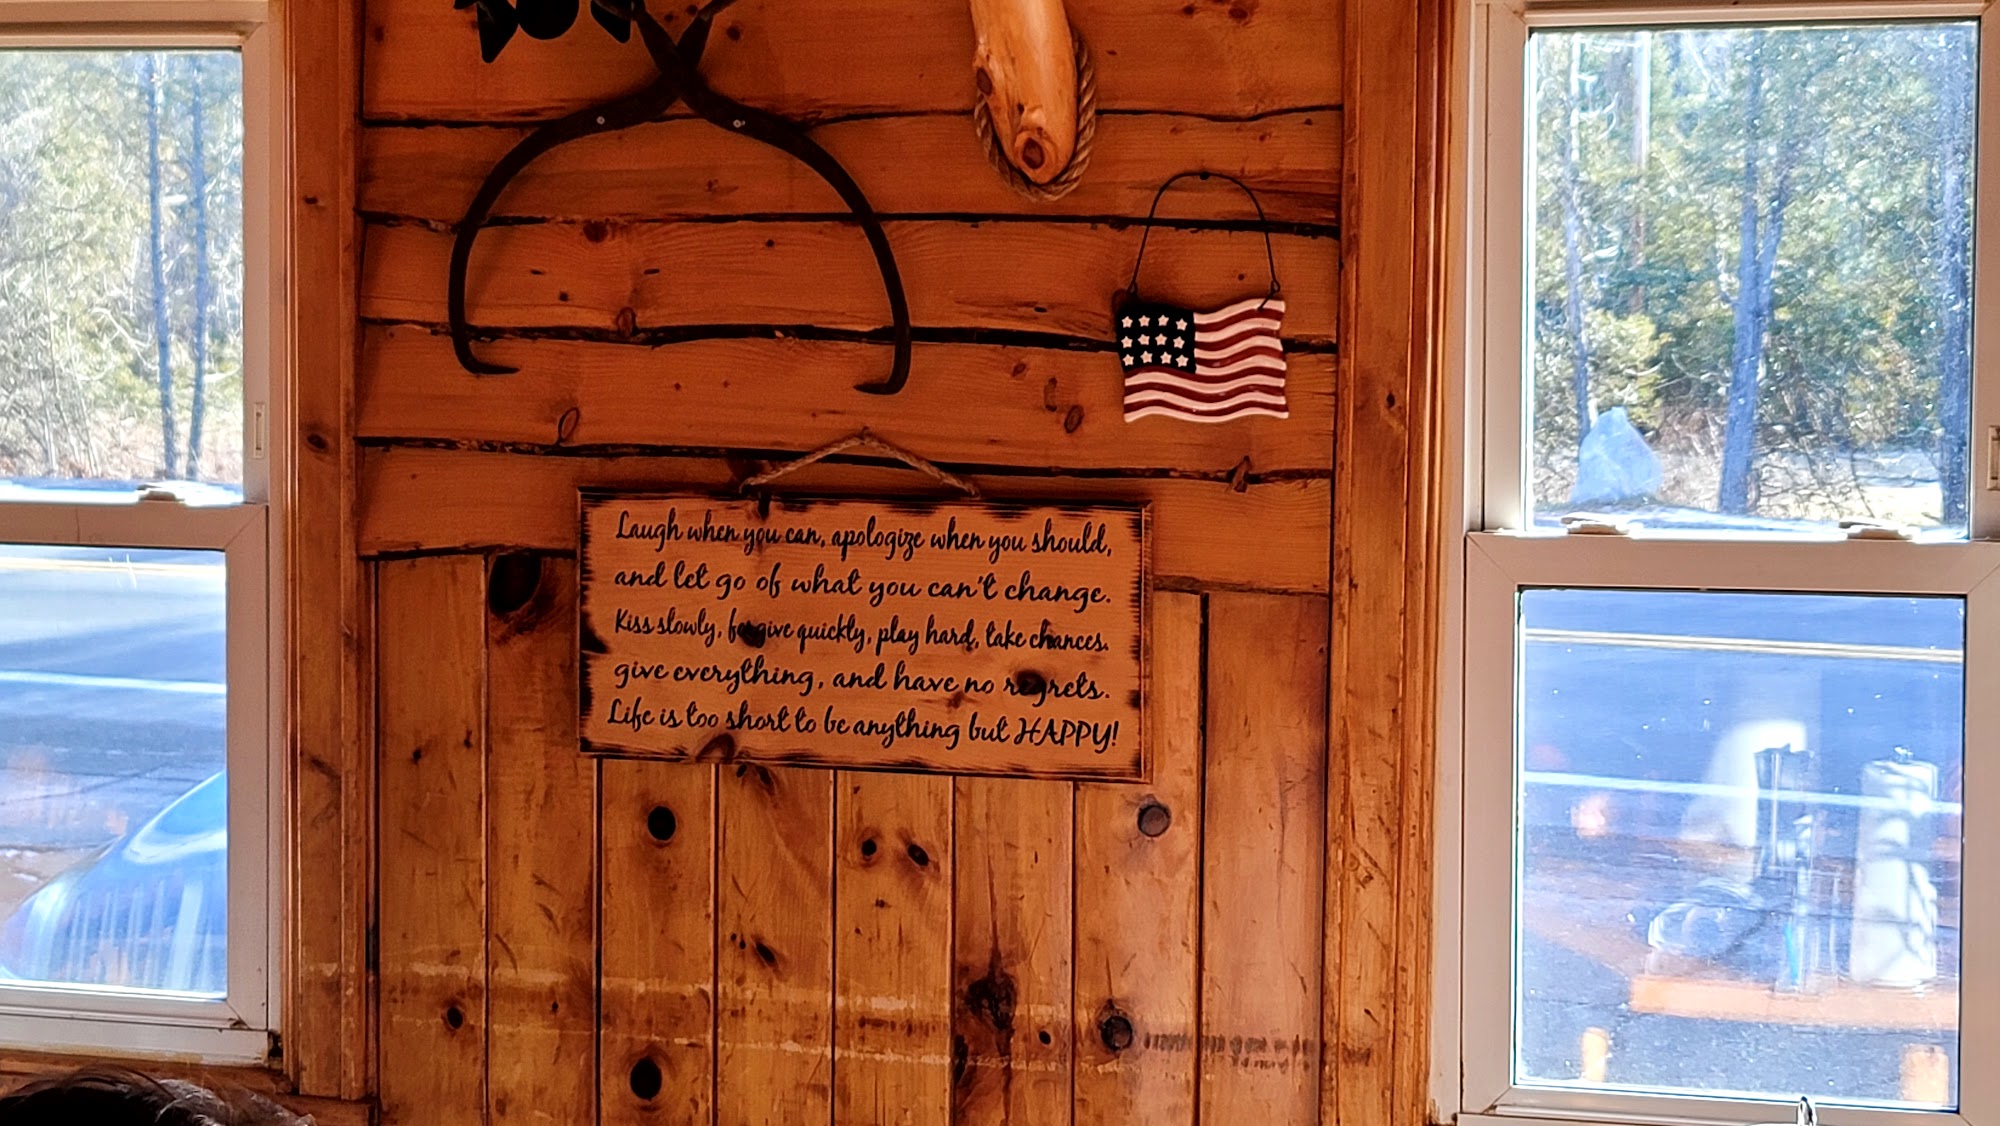 Laugh when you can, apologize when you should,
and let go of what you can't change.
Kiss slowly, forgive quickly, play hard, take chances.
give everything, and have no regrets.
Life is too short to be anything but HAPPY!